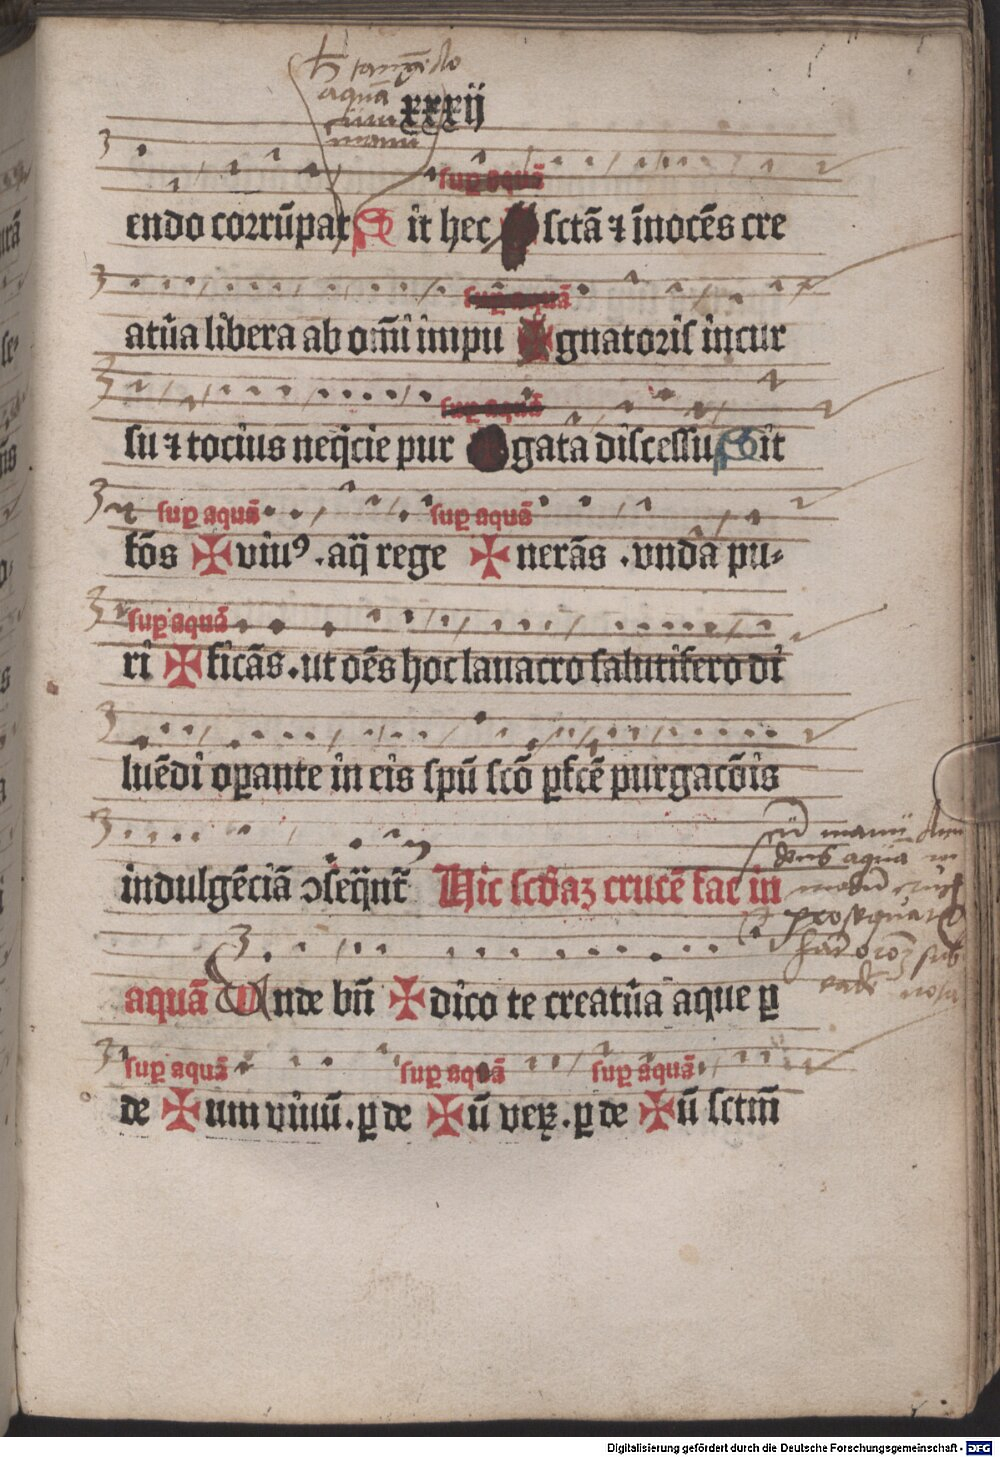 aquā
xxxij
manū
endo corrūpat Sit hec sctā ⁊ īnocēs cre
atūa libera ab om̄i impu gnatoris incur
sū ⁊ tocius neq̄cie pur gata discessu Sit
sup aquā sup aquā
fōs ✠ viuꝰ . aq̄ rege ✠ nerās . vnda pu-
sup aquā
ri ✠ ficās . ut oēs hoc lauacro salutifero di
luēdi oꝑante in eis spū scō ꝑfcē purgacōis
indulgēciā ↄseqnt̄ Hic scđaꝫ crucē fac in
aquā Vnde bn̄ ✠ dico te creatūa aque ꝑ
sup aquā sup aquā sup aquā
de ✠ um viuū . ꝑ de ✠ ū veꝝ . ꝑ de ✠ ū sctm̄
Digitalisierung gefördert durch die Deutsche Forschungsgemeinschaft - DFG